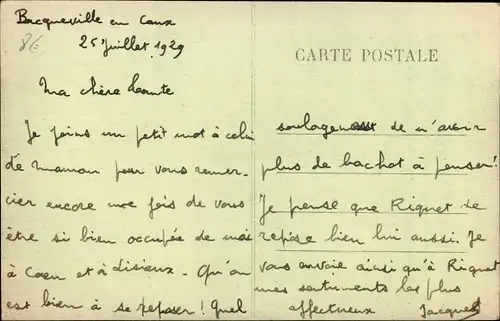 Bacqueville en Caux
25 Juillet 1929
CARTE POSTALE
Ma chère
Je joins un petit mot à celui
de maman pour vous remer-
cier encore une fois de vous
être si bien occupée de moi
à Caen et à Lisieux. Qu'on
est bien à se reposer! Quel
soulagement de n'avoir
plus de bachot à penser!
Je pense que Riquet se
repose bien lui aussi. Je
vous envoie ainsi qu'à Riquet
mes sentiments les plus
affectueux Jacques